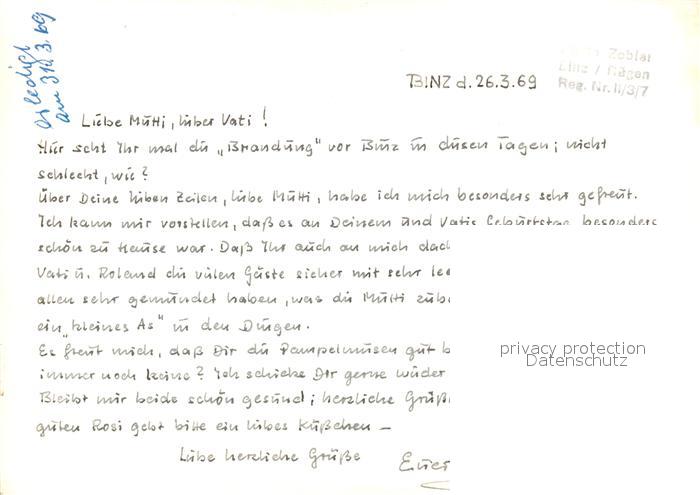 erledigt
am 31.3.69
BINZ d. 26.3.69
Zobler
Binz / Rügen
Reg. Nr. II/3/7
Liebe Mutti, lieber Vati!
Hier seht Ihr mal die „Brandung" vor Binz in diesen Tagen; nicht
schlecht, wie?
Über Deine lieben Zeilen, liebe Mutti, habe ich mich besonders sehr gefreut.
Ich kann mir vorstellen, daß es an Deinem und Vatis Geburtstag besonders
schön zu Hause war. Daß Ihr auch an mich dach
Vati u. Roland die vielen Gäste sicher mit sehr
allen sehr gemundet haben, was die Mutti zub
ein „kleines As" in den Dingen.
Es freut mich, daß Dir die Pampelmusen gut
immer noch keine? Ich schicke Dir gerne wieder
Bleibt mir beide schön gesund; herzliche Grüß
guten Rosi gebt bitte ein liebes Küßchen –
Liebe herzliche Grüße
Euer
privacy protection
Datenschutz